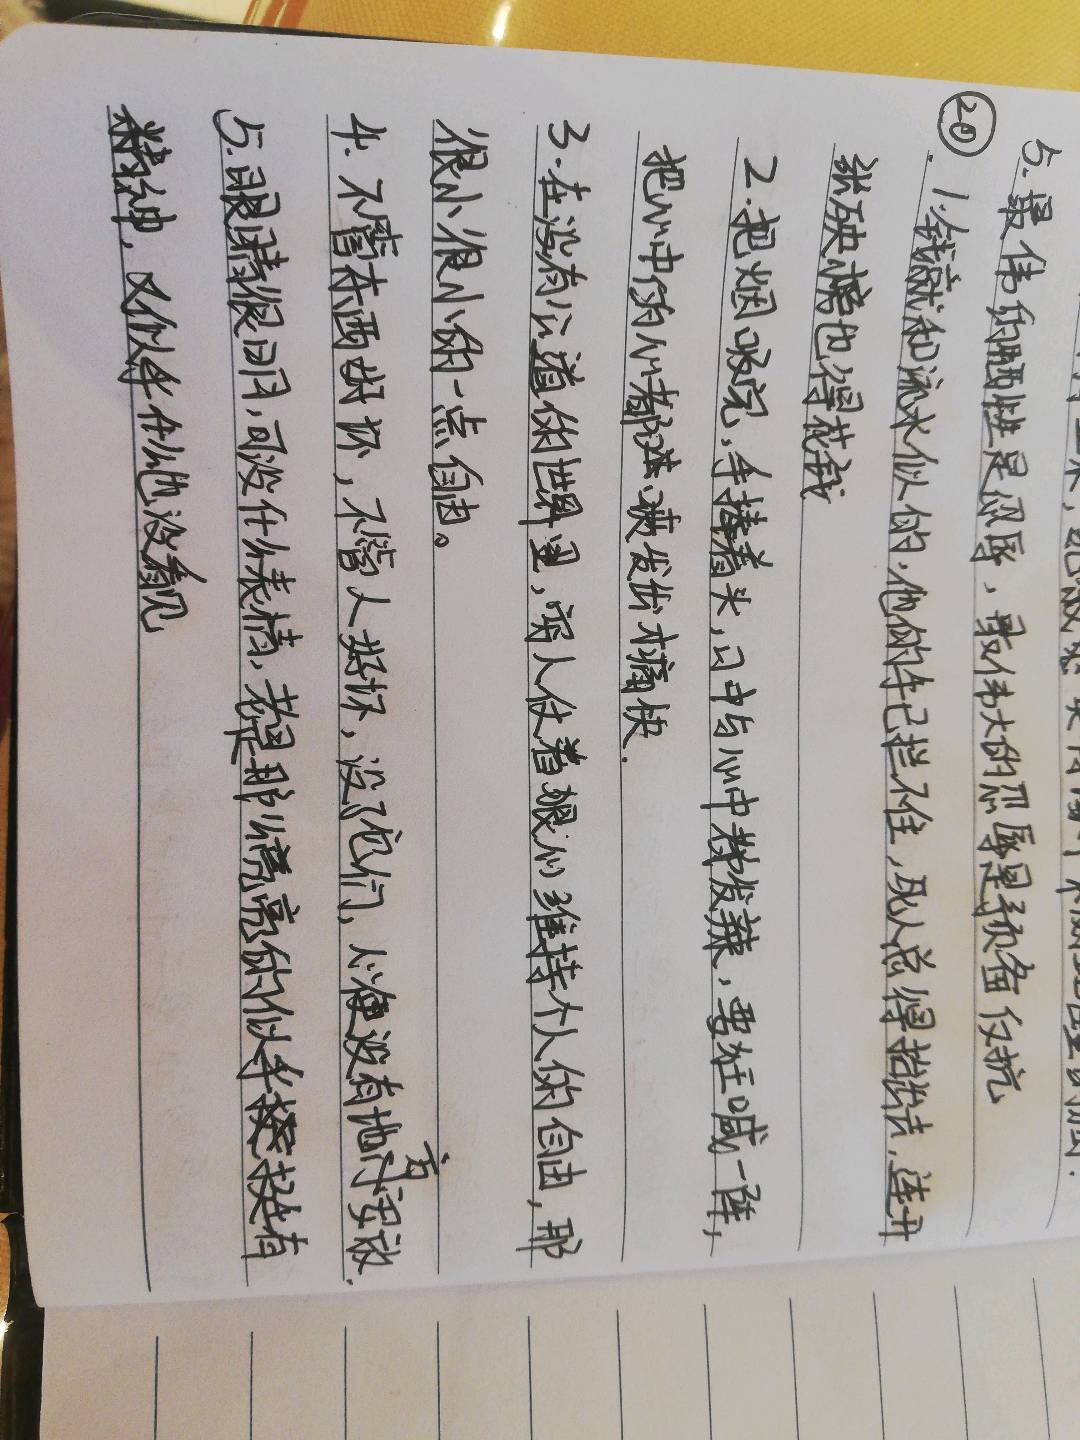 5.最伟的牺牲是忍辱，最伟大的忍辱是预备反抗
⑳ 1.钱就和流水似的，他的手已拦不住，死人总得抬出去，连开
张殃榜也得花钱
2.把烟吸完，手捧着头，口中与心中都发辣，要狂喊一阵，
把心中的血都喷出来才痛快.
3.在没有公道的世界里，穷人仗着狠心维持个人的自由，那
很小很小的一点自由。
4.不管东西好坏，不管人好坏，没了它们，心便没有地方安放.
5.眼睛很闭，可没什么表情，老是那么亮亮的似乎挺有
精神，又似乎什么也没看见